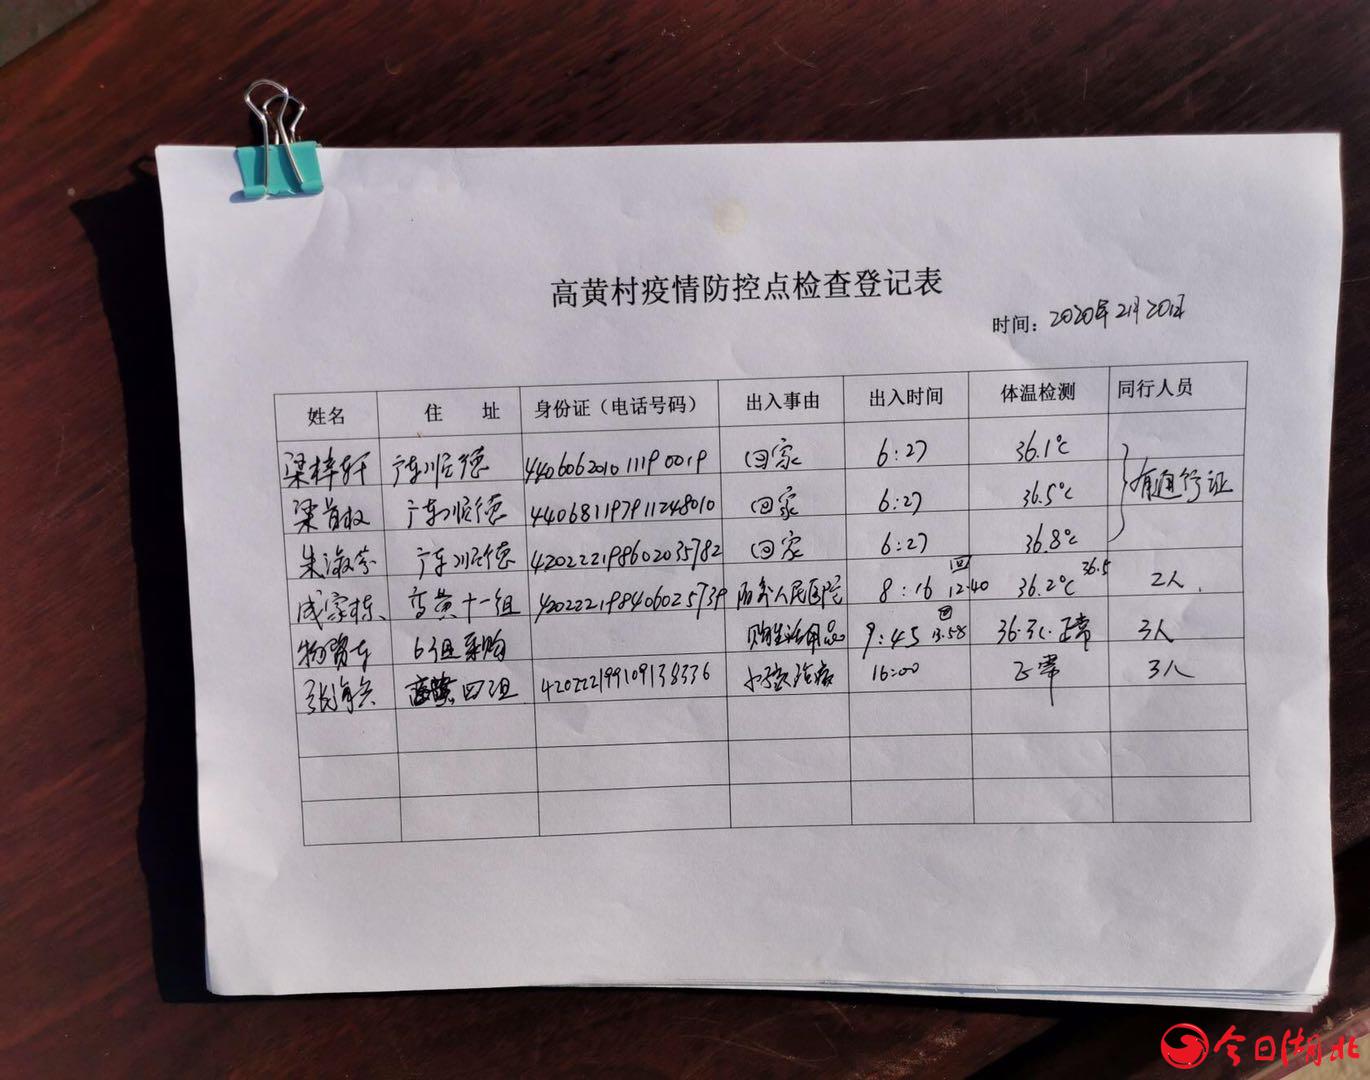 高黄村疫情防控点检查登记表
时间：2020年2月20日
姓名 住 址 身份证（电话号码） 出入事由 出入时间 体温检测 同行人员
梁梓轩 广东顺德 440606201011190019 回家 6:27 36.1℃
梁 广东顺德 440681197911248010 回家 6:27 36.5℃ 有通行证
朱淑芬 广东顺德 420222198602035782 回家 6:27 36.8℃
成家栋 高黄十一组 420222198406025739 人民医院 8:16 回 12:40 36.2℃ 36.5 2人
物资车 6组采购 购生活用品 9:45 回 13:58 正常 3人
张海兵 高黄四组 16:00 正常 3人
今日湖北